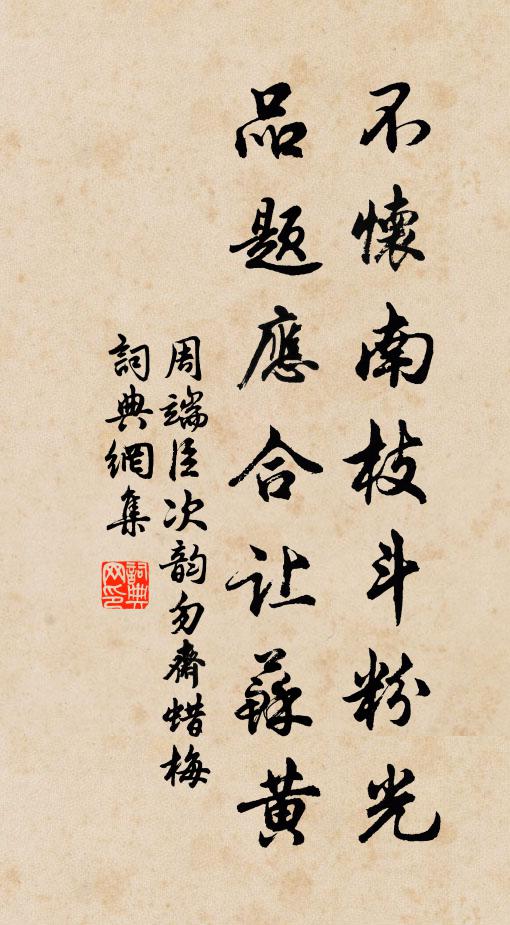 不懷南枝斗粉光
品题應合让蘇黄
周端臣次韵勿齋蜡梅
詞典網集
詞典网印